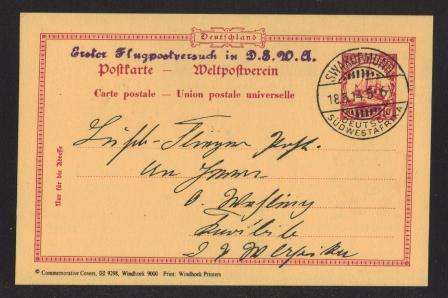 Deutschland
Erster Flugpostversuch in D.S.W.A.
Postkarte – Weltpostverein
Carte postale – Union postale universelle
SWAKOPMUND
18.5.14
DEUTSCH-
SÜDWESTAFRIKA
Nur für die Adresse
Flieger Post.
An Herrn
D. S. W. Afrika
© Commemorative Covers, 9298, Windhoek 9000 Print: Windhoek Printers